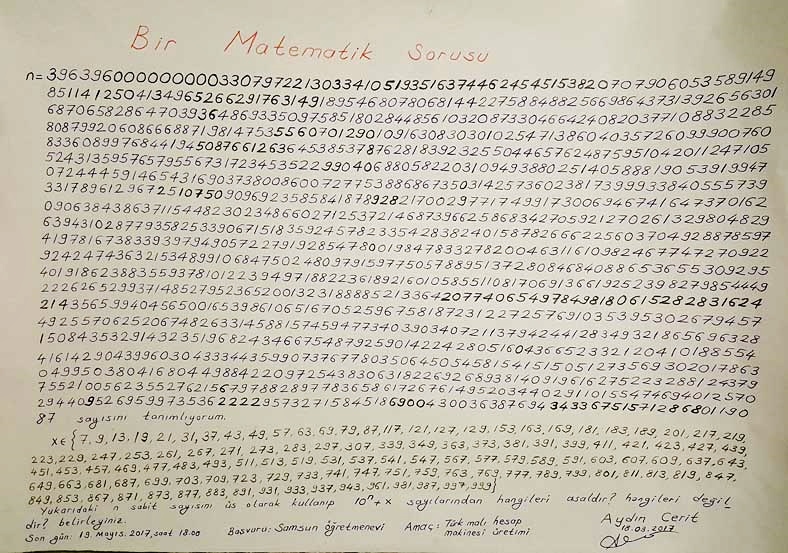 Bir Matematik Sorusu
n=3963960000000000330797221303341051935163744624545153820707906053589149
8511412504134965266291763149189546807806814422758848825669864373139265630
6870658286470393648693350975851802844856103208733046642408203771088322 85
8087992060866688719814753556070129010916308303010254713860403572609990 0760
833608997684419450876612636453853787628183923255044657624875951042011247105
524313595765795567317234535229904068805822031094938802514058881905391 9947
072444591465431690373800860072775388686735031425736023817399993384055 5739
3317896129672510750909692358584187892821700297717499173006946741647370162
0906384386371154482302348660271253721468739662586834270592127026132980 4829
6394310287793582533906715183592457823354283824015878266622560370492887 8597
4197816738339397949057227919285478001984783327820046311610982467747270922
9242474363215348991068475024809791597750578895137280846840886536553092 95
4019186238835593781012239497188223618921601058551108170691366192523982 79854449
2226265299371485279523652001323188885213364207740654978498180615282831624
2143565994045650016539861065167052596758187231227257691035395302679457
4925570625206748263314588157459477340390340721137942441283493218656963 28
1508435329143231519682434667548792590142242805160436652332120410188554
4161429043996030433344359907376778035064505458154151505127356930201786 3
0499503804168044988422097254383063182269268938140919616275223288124379
7552100562355276215679788289778365861726761495203440291101554746940125 70
2944095269599735362222957327158458186900430036387694343367515712868011 90
87 sayısını tanımlıyorum.
x∈{7,9,13,19,21,31,37,43,49,57,63,69,79,87,117,121,127,129,153,163,169,181,183,189,201,217,219,
223,229,247,253,261,267,271,273,283,297,307,339,349,363,373,381,391,399,411,421,423,427,439,
451,453,457,469,477,483,493,511,513,519,531,537,541,547,567,577,579,589,591,603,607,609,637,643,
649,663,681,687,699,703,709,723,729,733,741,747,751,759,763,769,777,789,799,801,811,813,819,847,
849,853,867,871,873,877,883,891,931,933,937,943,961,981,987,997,999}
Yukarıdaki n sabit sayısını üs olarak kullanıp 10ⁿ+x sayılarından hangileri asaldır? hangileri değil
dir? belirleyiniz.
Aydın Cerit
18.03.2017
Son gün: 19 Mayıs 2017, saat 18.00 Başvuru: Samsun öğretmenevi Amaç: Türk malı hesap
makinesi üretimi